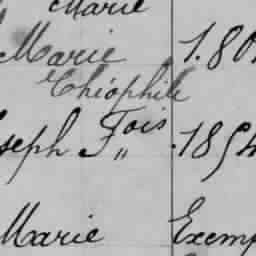 Marie
Marie 1.80
Théophile
seph Fois 185
Marie Exemp